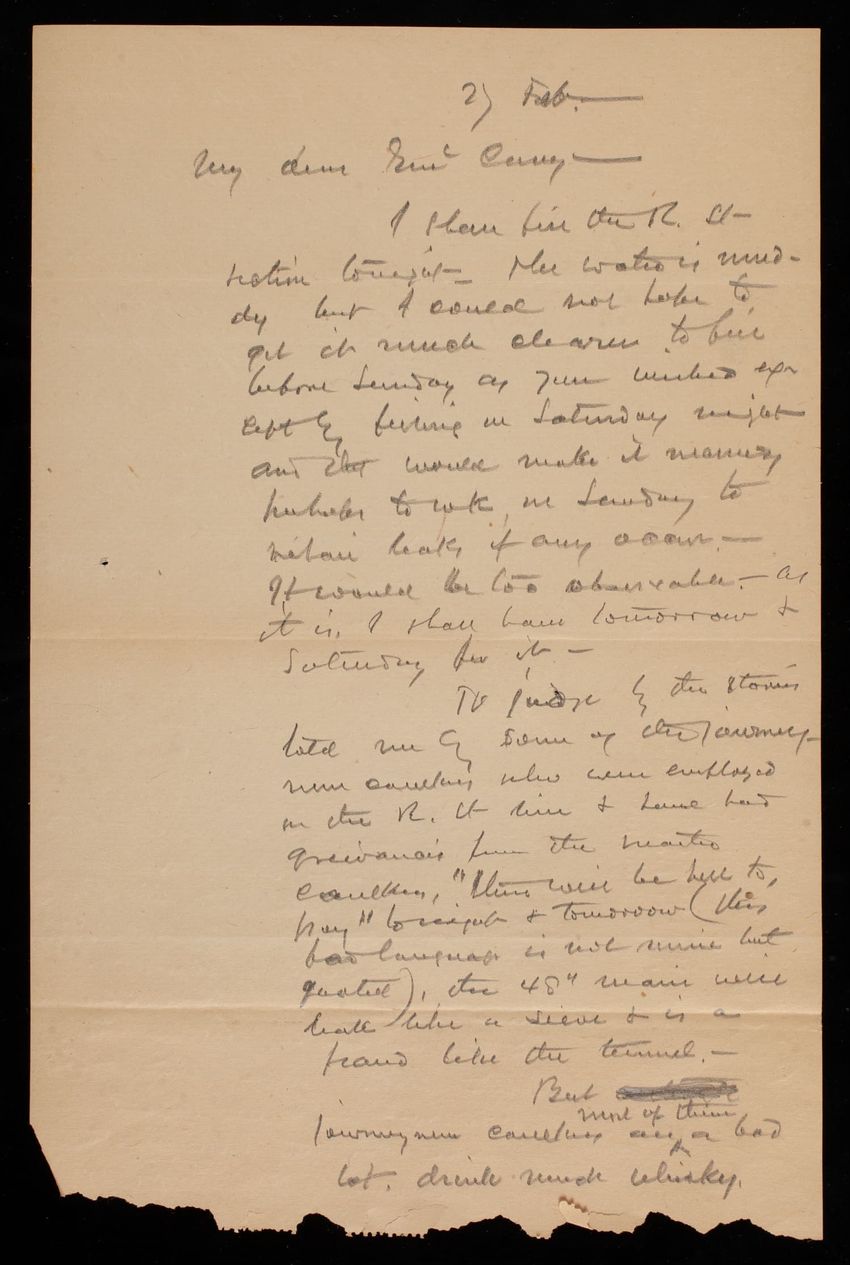 27 Feb.—
My dear Genl Casey—
I shall fill the R. St
section tonight— The water is mud-
dy but I could not hope to
get it much clearer to fill
before Sunday as you wished ex-
cept by filling on Saturday night
and that would make it necessary
perhaps to wk. on Sunday to
repair leaks if any occur.—
It would be too observable.— As
it is, I shall have tomorrow &
Saturday for it—
To judge by the stories
told me by some of the journey-
men caulkers who were employed
on the R. St line & have had
greivances from the master
caulker, "there will be hell to
pay" tonight & tomorrow (this
bad language is not mine but
quoted), the 48" main will
leak like a sieve & is a
fraud like the tunnel.—
But
most of them
journeymen caulkers are a bad
lot. drink much whisky.